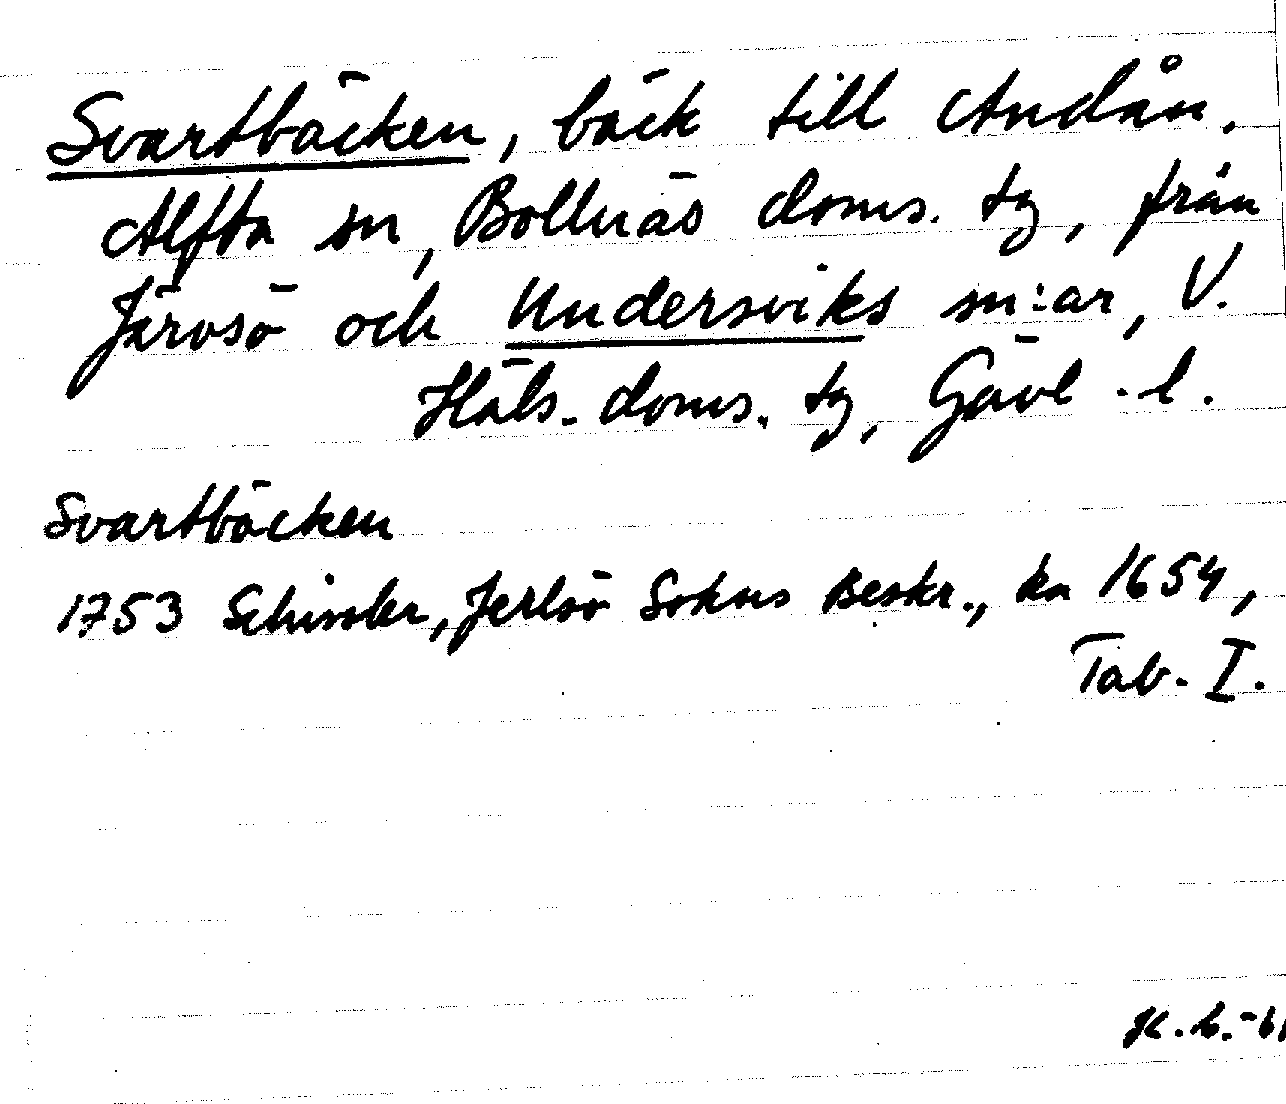 Svartbäcken, bäck till Andån.
Alfta sn, Bollnäs doms. tg, från
Järvsö och Undersviks sn:ar, V.
Häls. doms. tg, Gävl. l.
Svartbäcken
1753 Schissler, Jerlsö Sokns Beskr., ka 1654,
Tab. I.